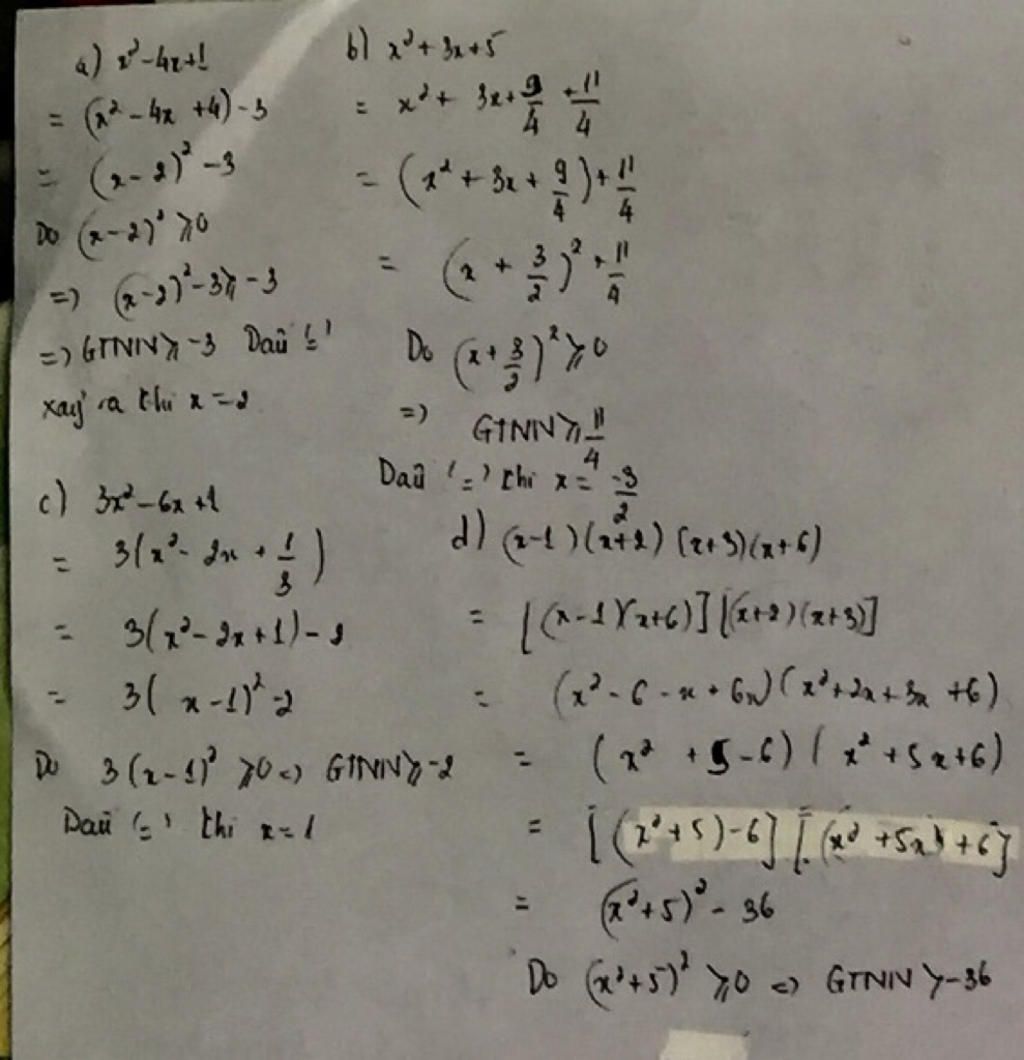 a) x² - 4x + 1
= (x² - 4x + 4) - 3
= (x - 2)² - 3
Do (x - 2)² ⩾ 0
=> (x - 2)² - 3 ⩾ -3
=> GTNN ⩾ -3 Dấu '='
xảy ra khi x = 2
b) x² + 3x + 5
= x² + 3x + 9/4 + 11/4
= (x² + 3x + 9/4) + 11/4
= (x + 3/2)² + 11/4
Do (x + 3/2)² ⩾ 0
=> GTNN ⩾ 11/4
Dấu '=' khi x = -3/2
c) 3x² - 6x + 1
= 3(x² - 2x + 1/3)
= 3(x² - 2x + 1) - 2
= 3(x - 1)² - 2
Do 3(x - 1)² ⩾ 0 => GTNN ⩾ -2
Dấu '=' khi x = 1
d) (x - 1)(x + 2)(x + 3)(x + 6)
= [(x - 1)(x + 6)][(x + 2)(x + 3)]
= (x² - 6 - x + 6x)(x² + 2x + 3x + 6)
= (x² + 5 - 6)(x² + 5x + 6)
= [(x² + 5) - 6][(x² + 5x) + 6]
= (x² + 5)² - 36
Do (x² + 5)² ⩾ 0 => GTNN ⩾ -36